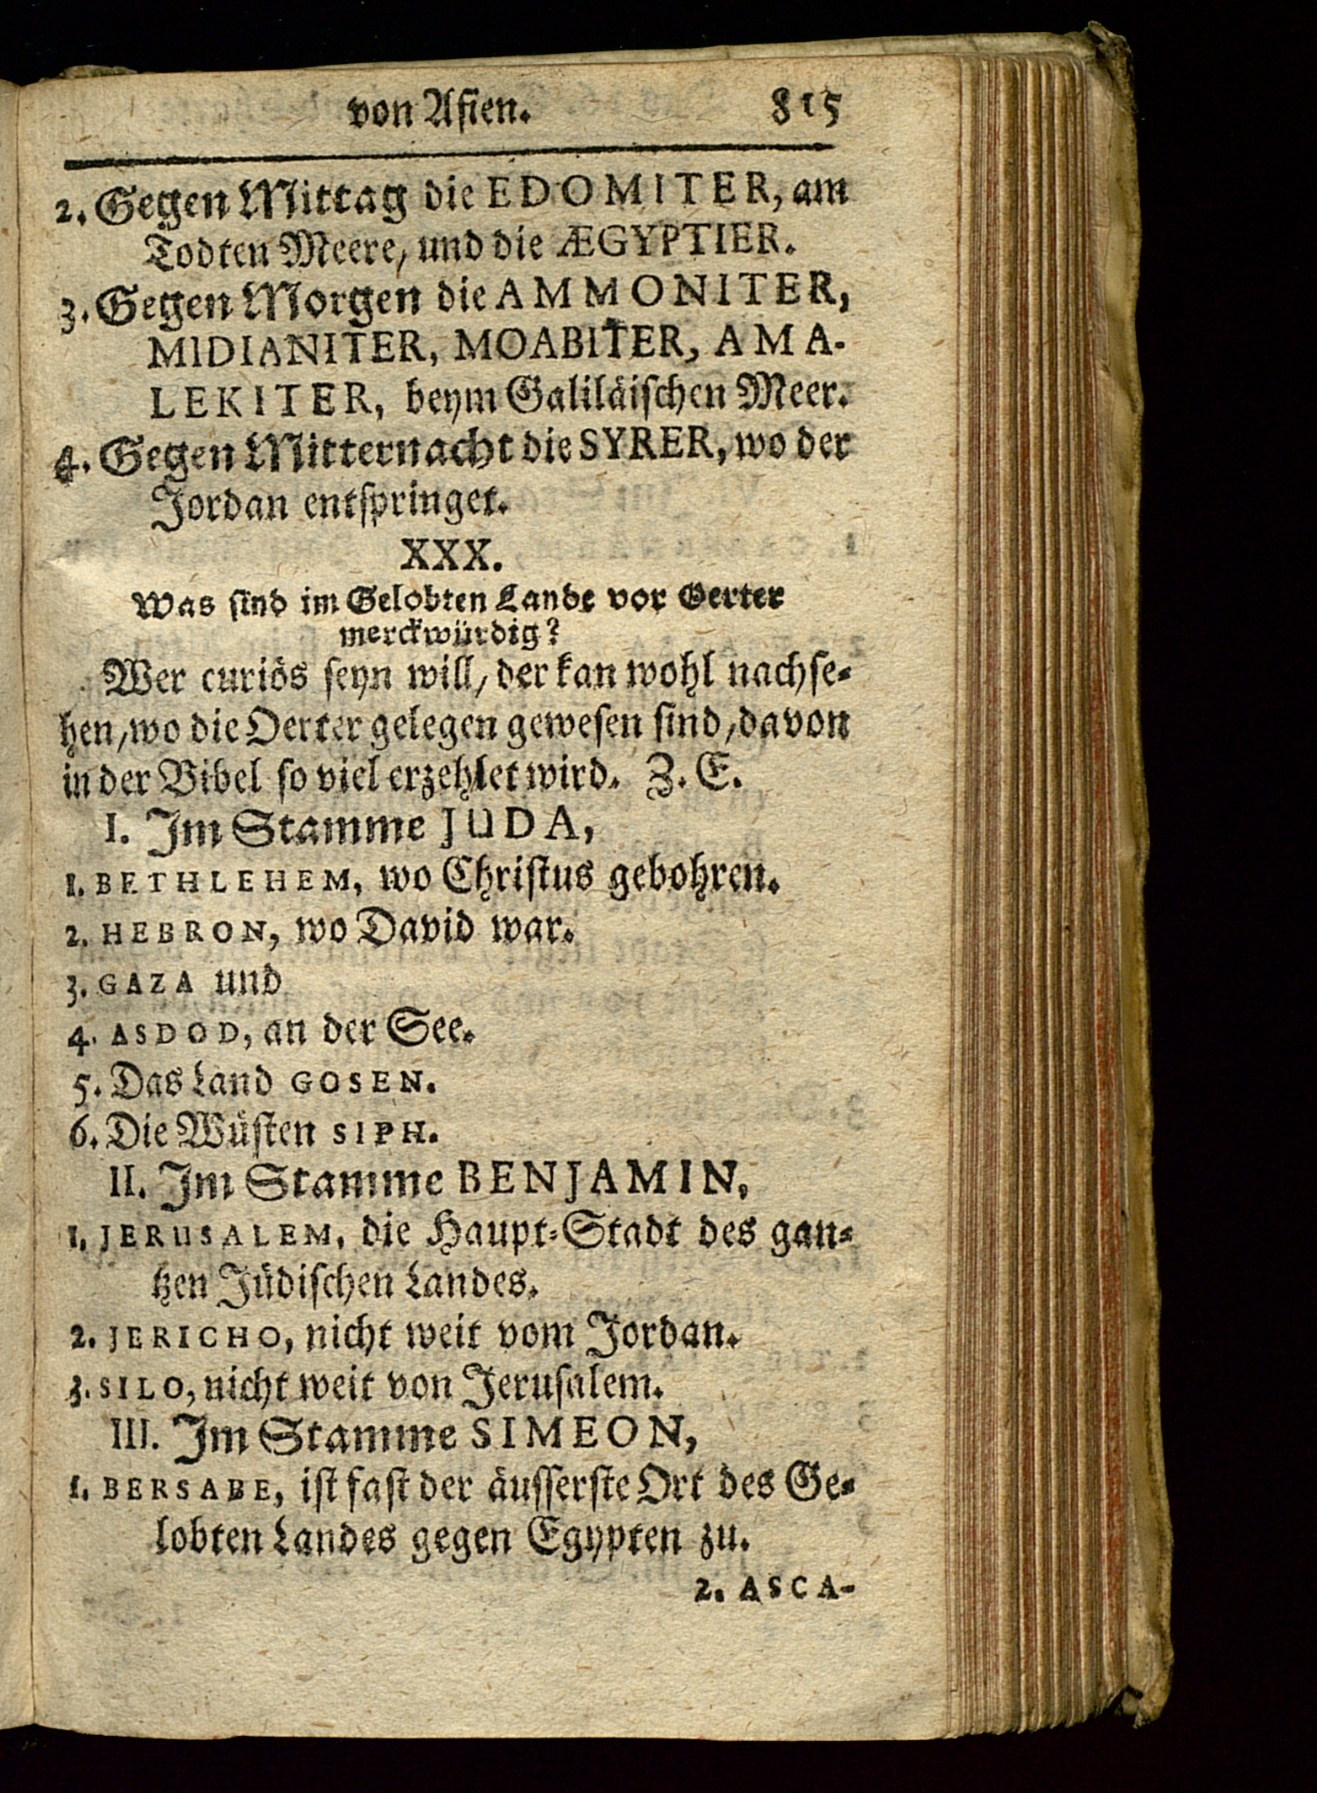 von Asien. 815
2. Gegen Mittag die EDOMITER, am
Todten Meere, und die ÆGYPTIER.
3. Gegen Morgen die AMMONITER,
MIDIANITER, MOABITER, AMA-
LEKITER, beym Galiläischen Meer.
4. Gegen Mitternacht die SYRER, wo der
Jordan entspringet.
XXX.
Was sind im Gelobten Lande vor Oerter
merckwürdig?
Wer curiös seyn will, der kan wohl nachse-
hen, wo die Oerter gelegen gewesen sind, davon
in der Bibel so viel erzehlet wird. Z. E.
I. Im Stamme JUDA,
1. BETHLEHEM, wo Christus gebohren.
2. HEBRON, wo David war.
3. GAZA und
4. ASDOD, an der See.
5. Das Land GOSEN.
6. Die Wüsten SIPH.
II. Im Stamme BENJAMIN,
1. JERUSALEM, die Haupt-Stadt des gan-
tzen Jüdischen Landes.
2. JERICHO, nicht weit vom Jordan.
3. SILO, nicht weit von Jerusalem.
III. Im Stamme SIMEON,
1. BERSABE, ist fast der äusserste Ort des Ge-
lobten Landes gegen Egypten zu.
2. ASCA-